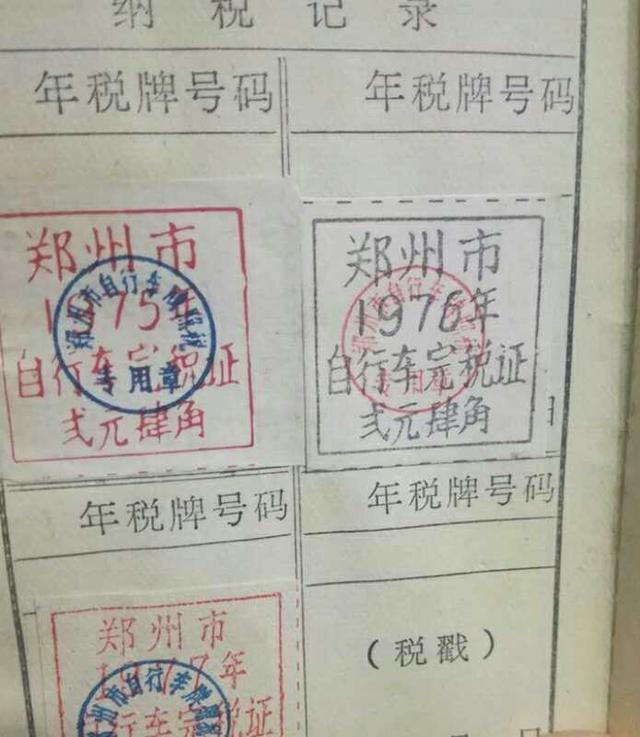 纳税记录
年税牌号码
年税牌号码
郑州市
1975年
自行车完税证
弍元肆角
专用章
郑州市
1976年
自行车完税证
弍元肆角
专用章
年税牌号码
年税牌号码
郑州市
1977年
自行车完税证
(税戳)